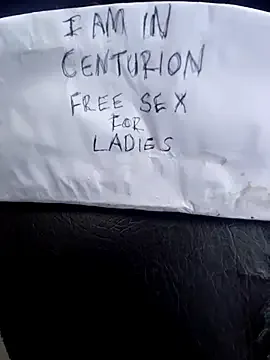 I AM IN
CENTURION
FREE SEX
FOR
LADIES